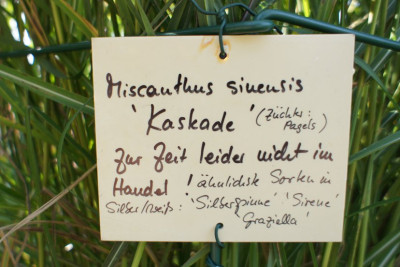 Miscanthus sinensis
'Kaskade' (Züchter:
Pagels)
Zur Zeit leider nicht im
Handel ! ähnlichste Sorten in
Silber/Weiß: 'Silberspinne' 'Sirene'
'Graziella'